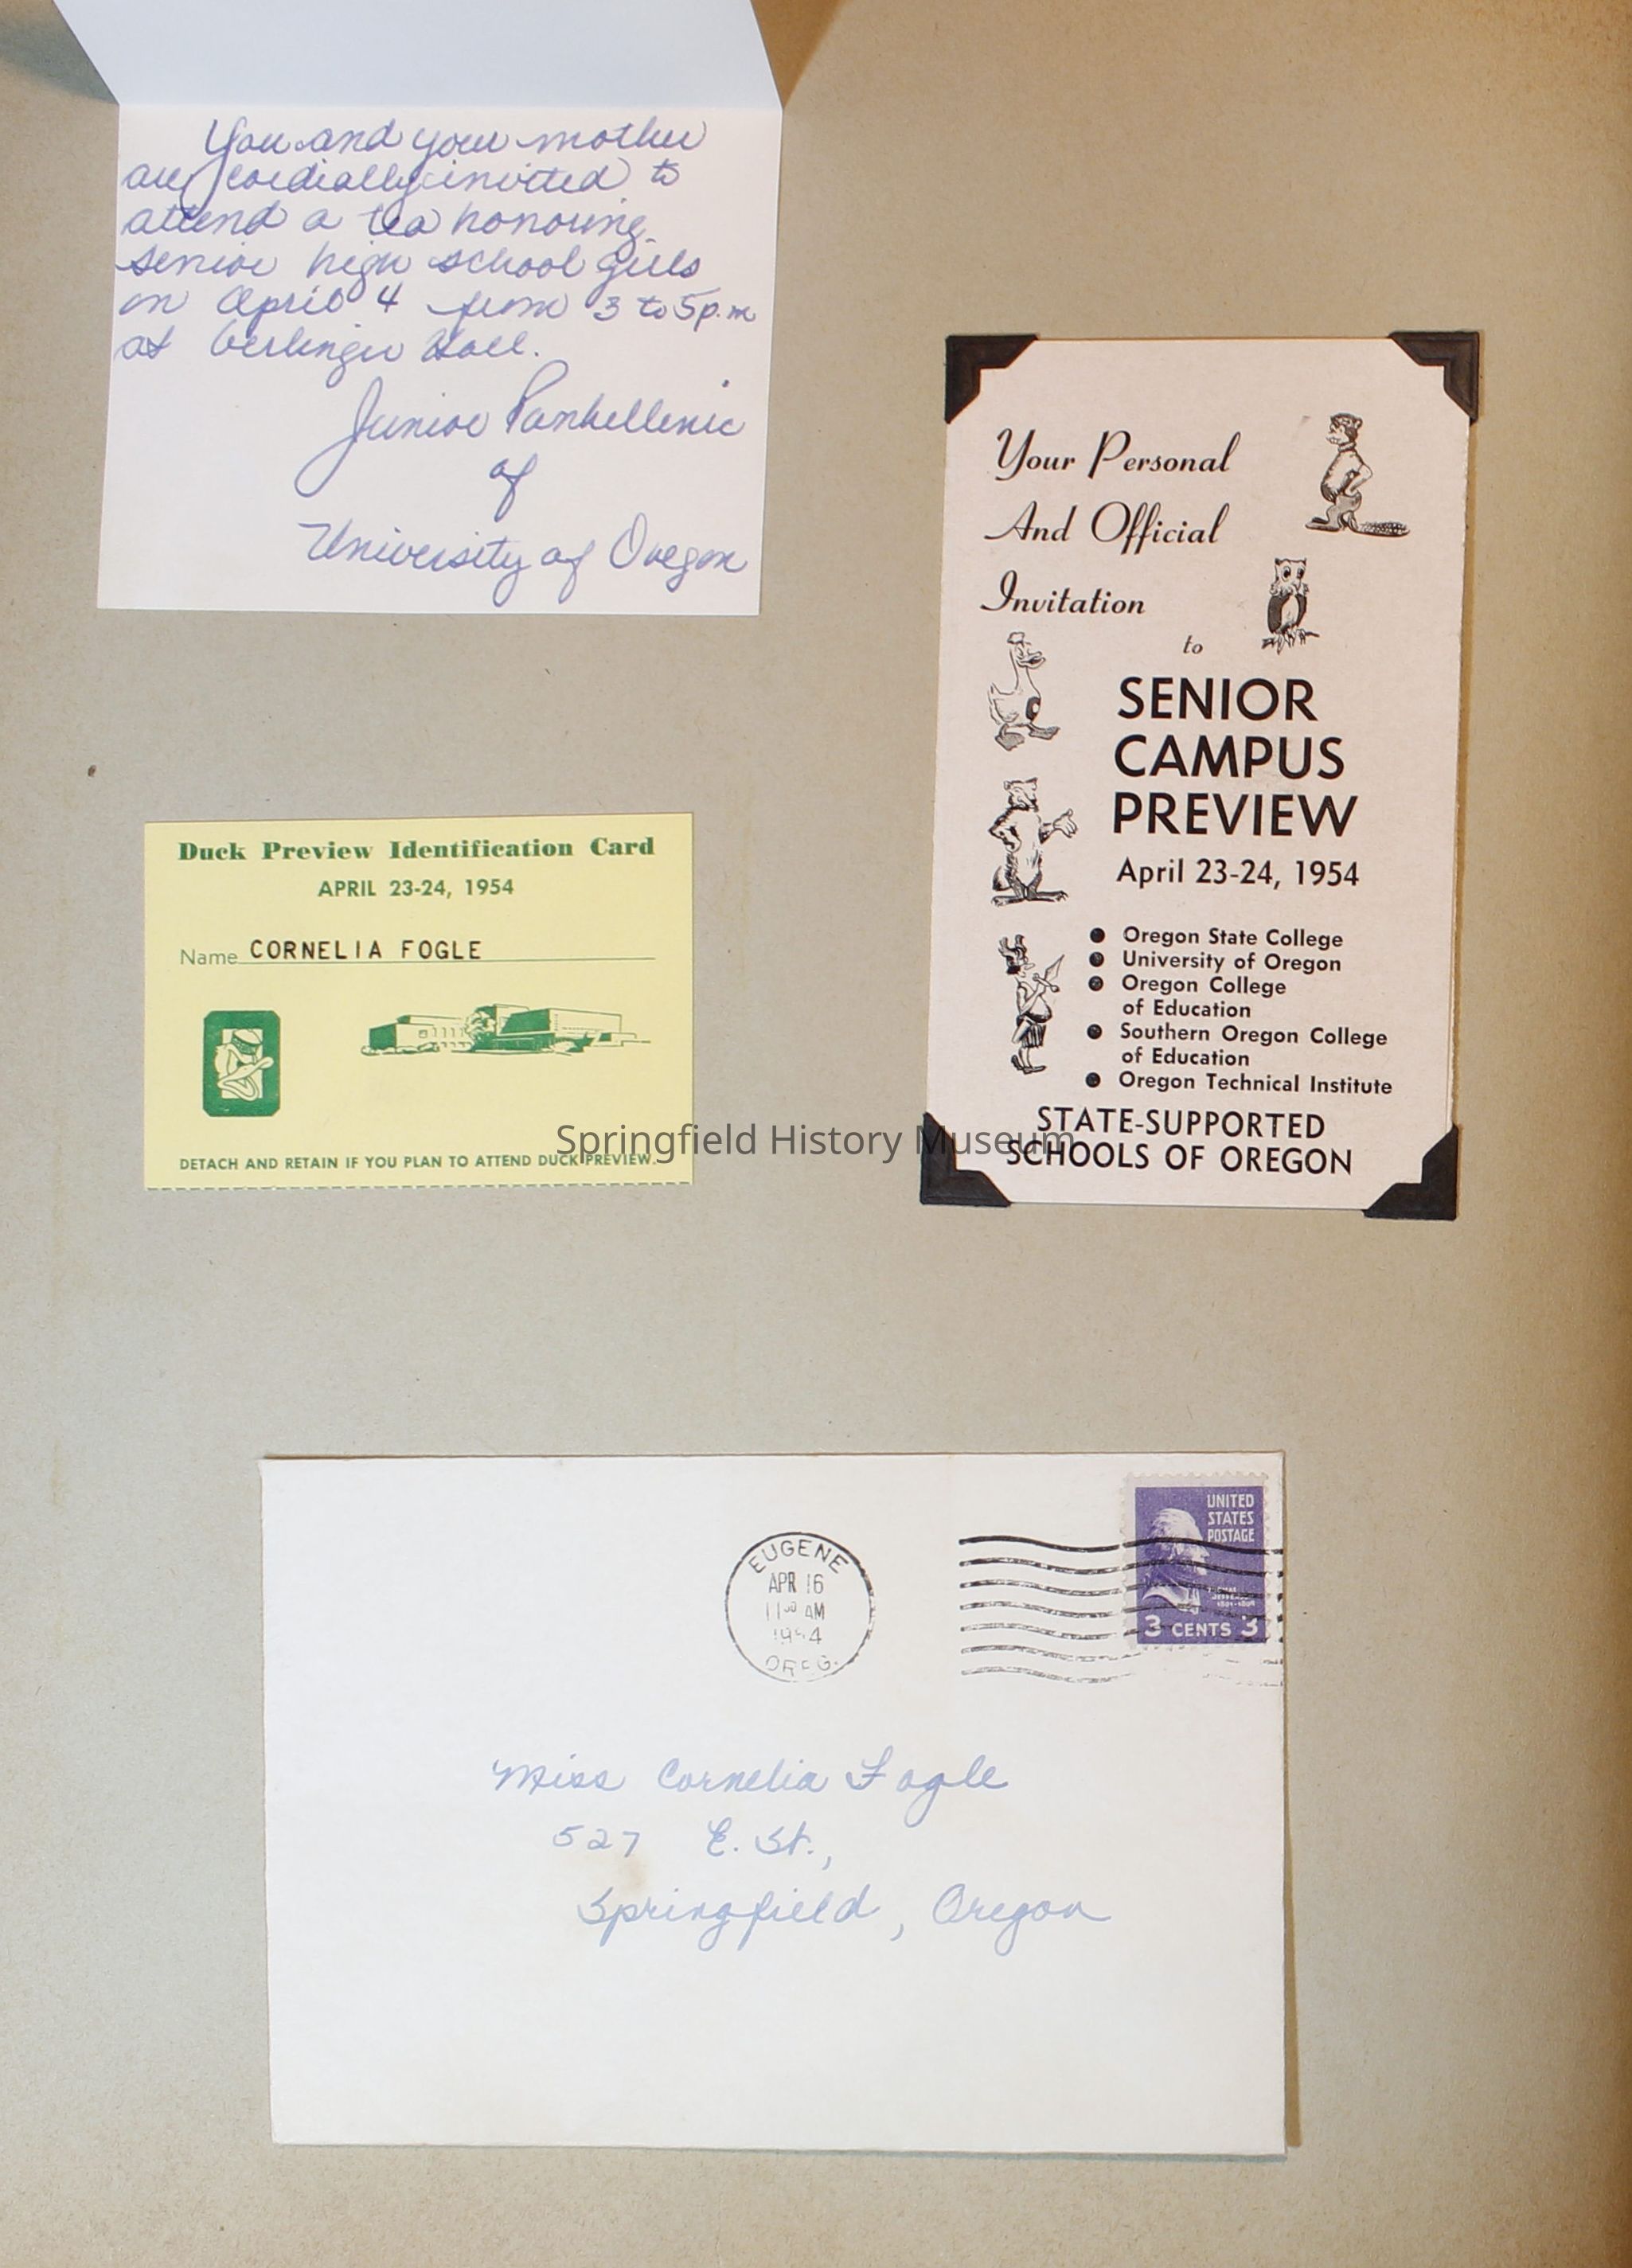 You and your mother
are cordially invited to
attend a tea honoring
senior high school girls
on April 4 from 3 to 5 p.m
at Gerlinger Hall.
Junior Panhellenic
of
University of Oregon
Your Personal
And Official
Invitation
to
SENIOR
CAMPUS
PREVIEW
April 23-24, 1954
Oregon State College
University of Oregon
Oregon College
of Education
Southern Oregon College
of Education
Oregon Technical Institute
STATE-SUPPORTED
SCHOOLS OF OREGON
Duck Preview Identification Card
APRIL 23-24, 1954
Name CORNELIA FOGLE
DETACH AND RETAIN IF YOU PLAN TO ATTEND DUCK PREVIEW.
Springfield History Museum
UNITED
STATES
POSTAGE
3 CENTS 3
EUGENE
APR 16
11 AM
1954
OREG.
Miss Cornelia Fogle
527 E. St.,
Springfield, Oregon